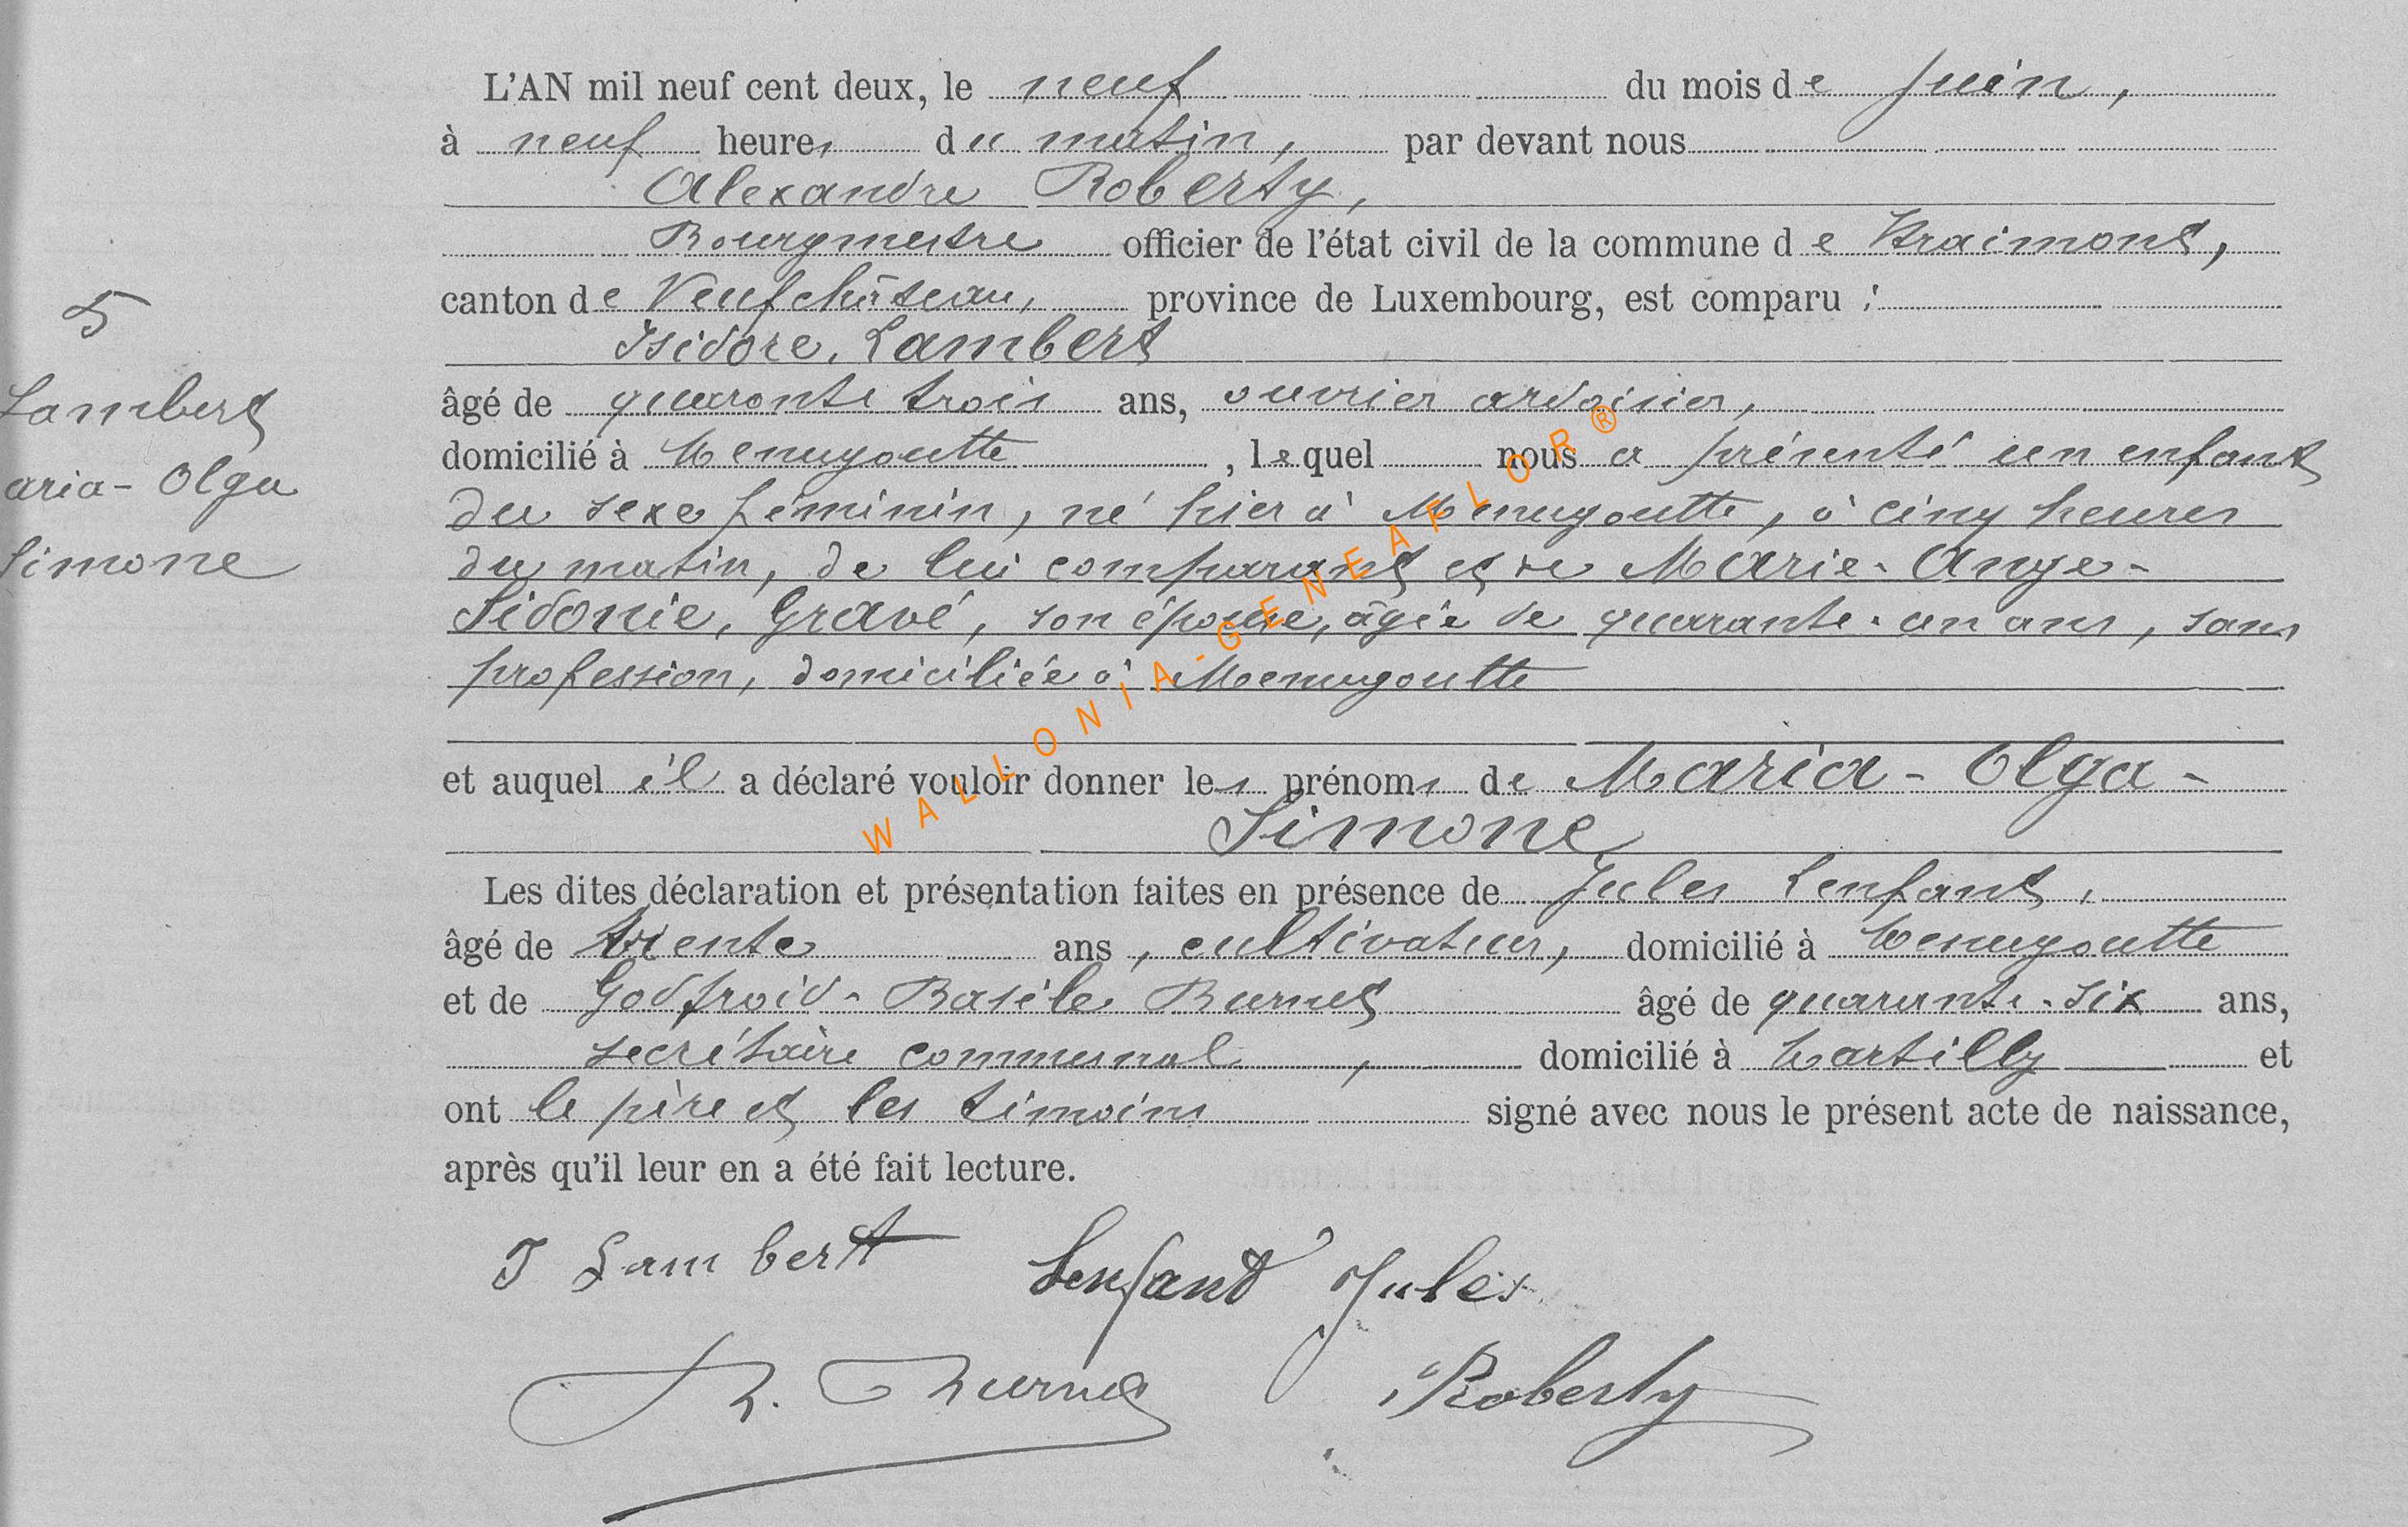 L'AN mil neuf cent deux, le neuf du mois de juin,
à neuf heures du matin, par devant nous
Alexandre Roberty,
Bourgmestre officier de l'état civil de la commune de Straimont,
5
canton de Neufchâteau, province de Luxembourg, est comparu :
Isidore, Lambert
Lambert
âgé de quarante trois ans, ouvrier ardoisier,
domicilié à Menugoutte, lequel nous a présenté un enfant
aria-Olga
du sexe féminin, né hier à Menugoutte, à cinq heures
Simone
du matin, de lui comparant et de Marie-Ange-
Sidonie, Gravé, son épouse, âgée de quarante-un ans, sans
profession, domiciliée à Menugoutte
et auquel il a déclaré vouloir donner les prénoms de Maria-Olga-
Simone
Les dites déclaration et présentation faites en présence de Jules Lenfant,
âgé de trente ans, cultivateur, domicilié à Menugoutte
et de Godfroid-Basile Burnet âgé de quarante-six ans,
secrétaire communal, domicilié à Martilly et
ont le père et les témoins signé avec nous le présent acte de naissance,
après qu'il leur en a été fait lecture.
J Lambert Lenfant Jules
Burnet Roberty
WALLONIA-GENEAFLOR®